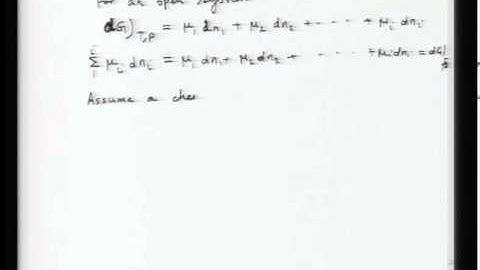 For an open system
dG)T,P = μ1 dn1 + μ2 dn2 + - - - - + μi dni
Σ μi dni = μ1 dn1 + μ2 dn2 + - - - - + μi dni = dG)
Assume a che